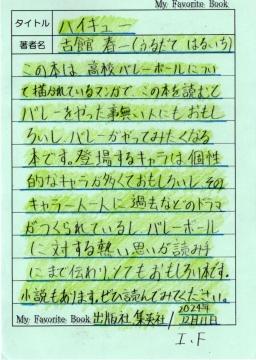 My Favorite Book
タイトル ハイキュー
著者名 古館 春一(ふるだて はるいち)
この本は、高校バレーボールについ
て描かれているマンガで、この本を読むと
バレーをやった事無い人にもおもし
ろいし、バレーがやってみたくなる
本です。登場するキャラは、個性
的なキャラが多くておもしろいし、その
キャラ一人一人に過去などのドラマ
がつくられているし、バレーボール
に対する熱い思いが読み手
にまで伝わり、とてもおもしろい本です。
小説もあります。ぜひ読んでみてください。
My Favorite Book 出版社 集英社 2024年
12月11日
I.F